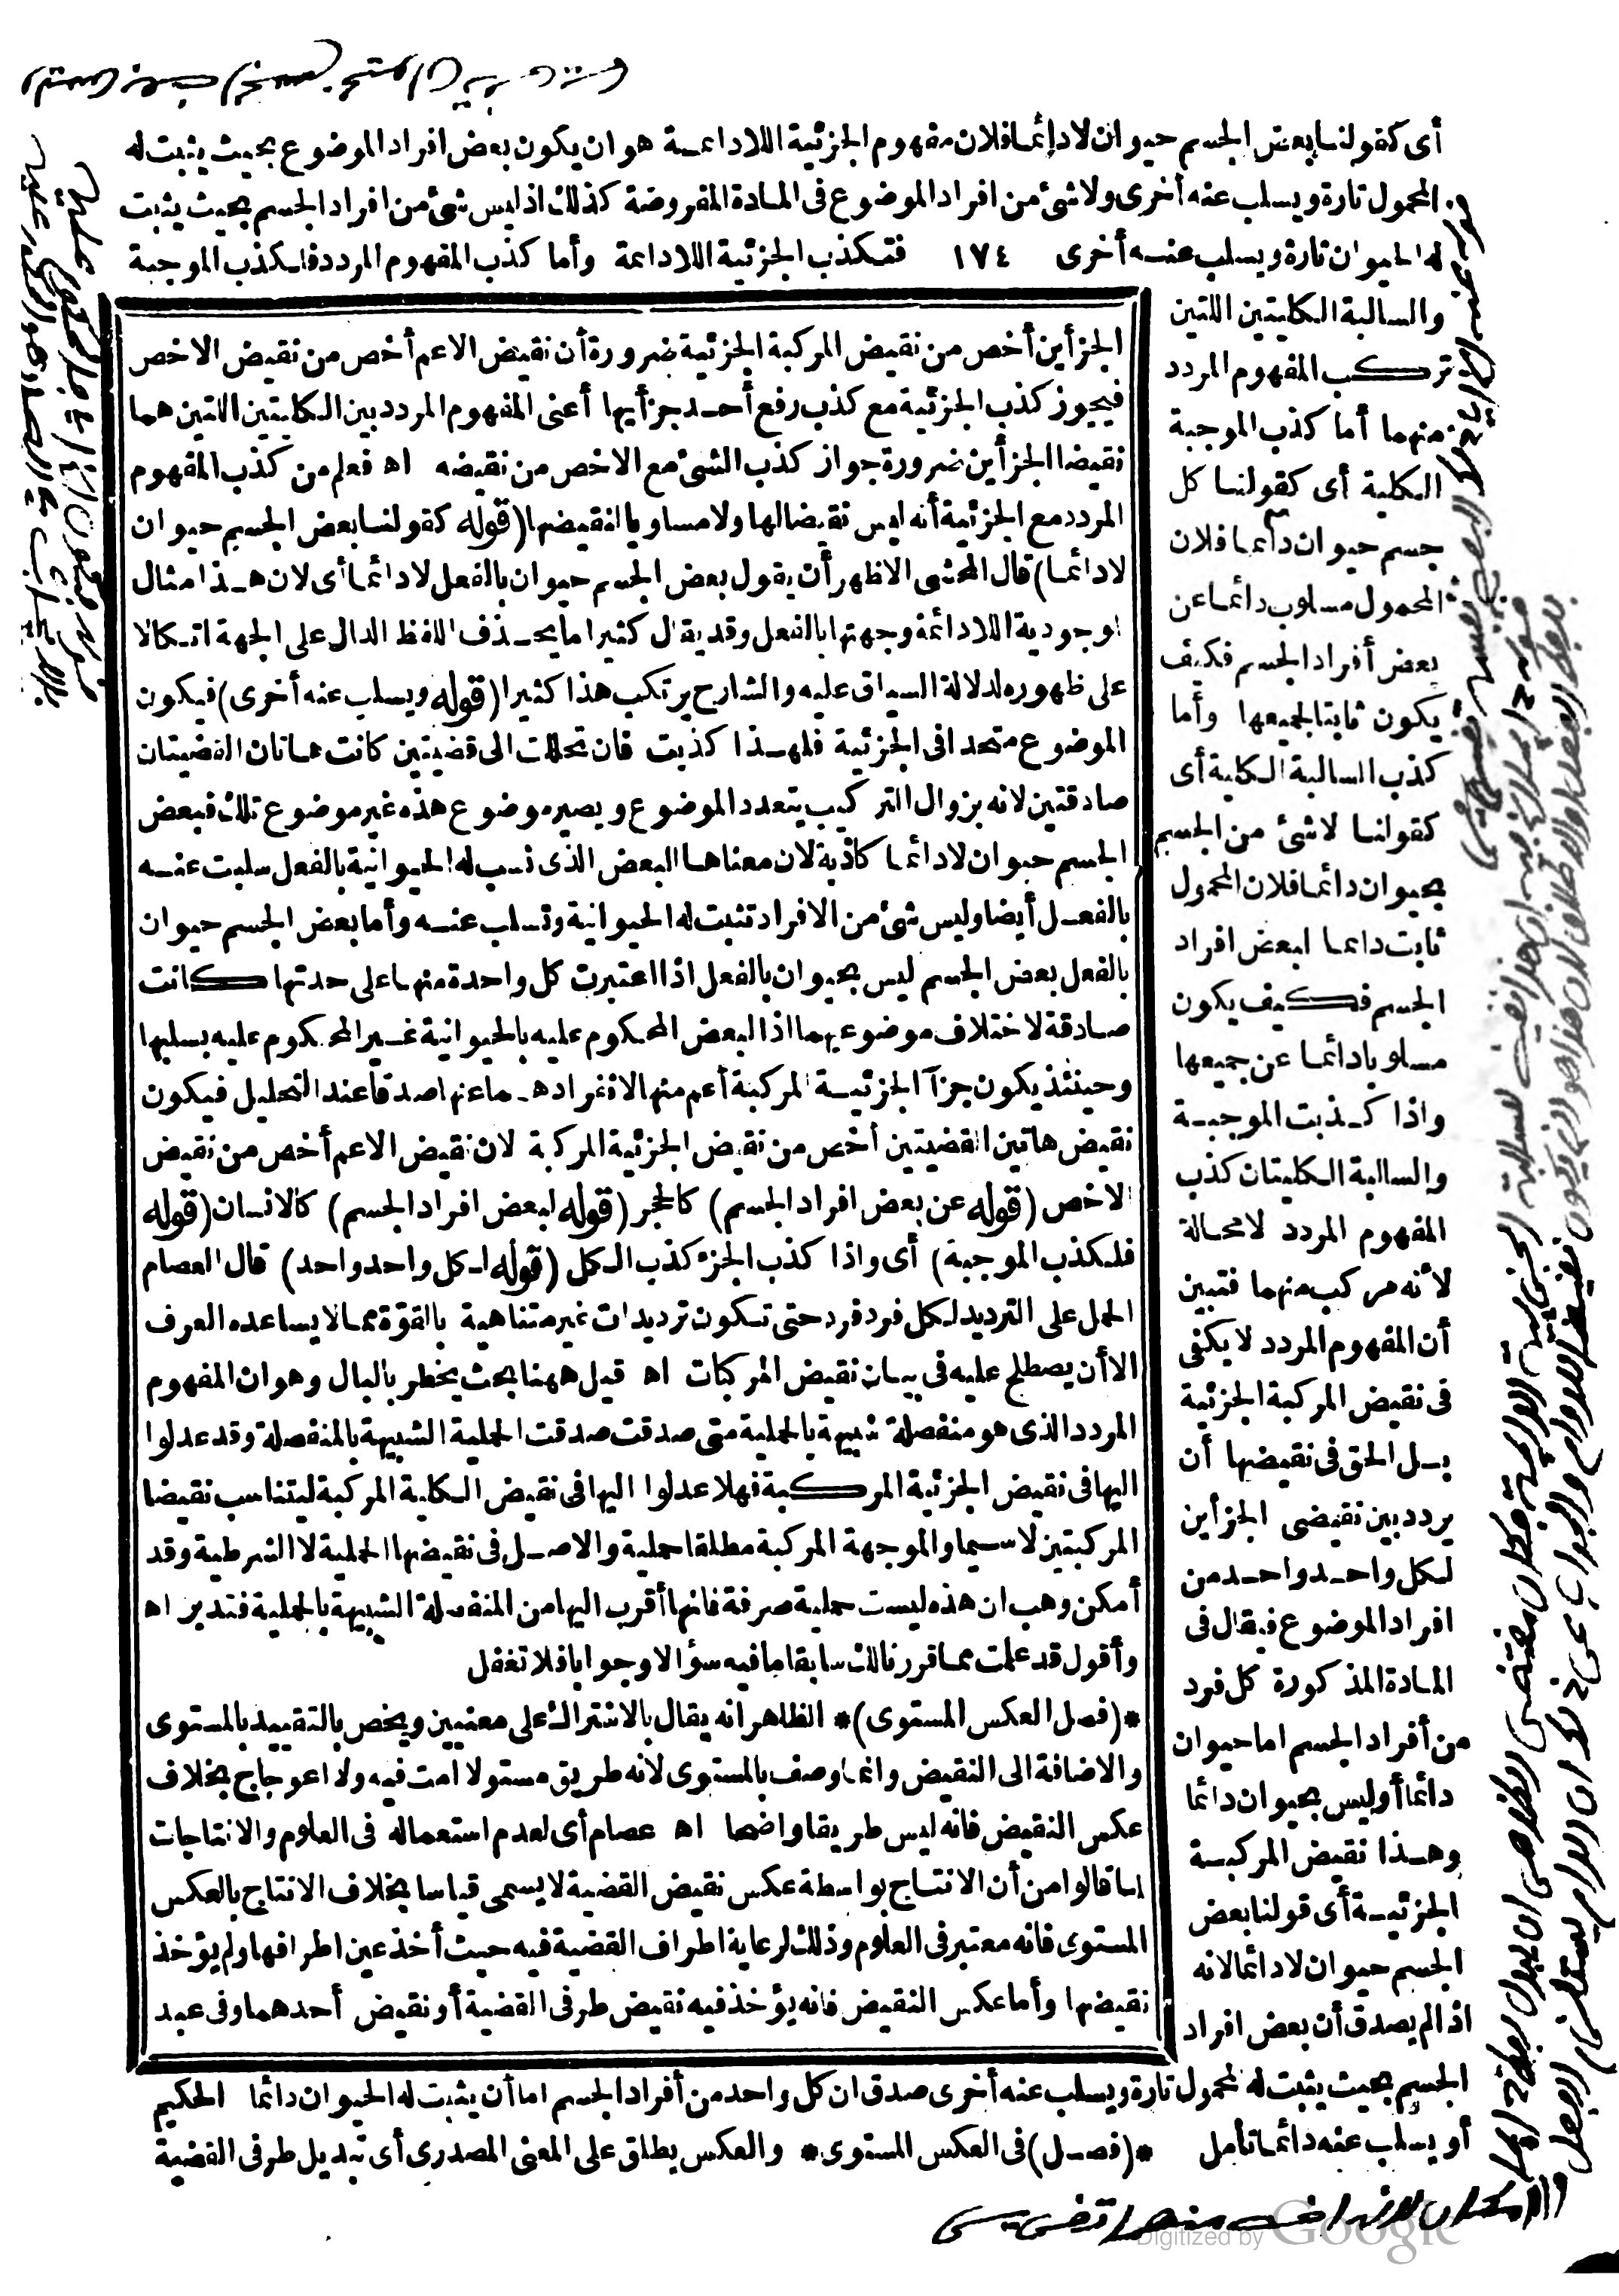 أى كقولنا بعض الجسم حيوان لا دائما فلان مفهوم الجزئية اللادائمة هو ان يكون بعض افراد الموضوع بحيث يثبت له
المحمول تارة ويسلب عنه أخرى ولا شئ من افراد الموضوع فى المادة المفروضة كذلك اذ ليس شئ من افراد الجسم بحيث يثبت
له الحيوان تارة ويسلب عنه أخرى ١٧٤ فتكذب الجزئية اللادائمة وأما كذب المفهوم المردد فلكذب الموجبة
والسالبة الكليتين اللتين
تركب المفهوم المردد
منهما أما كذب الموجبة
الكلية أى كقولنا كل
جسم حيوان دائما فلان
المحمول مسلوب دائما عن
بعض أفراد الجسم فكيف
يكون ثابتا لجميعها وأما
كذب السالبة الكلية أى
كقولنا لا شئ من الجسم
بحيوان دائما فلان المحمول
ثابت دائما لبعض افراد
الجسم فكيف يكون
مسلوبا دائما عن جميعها
واذا كذبت الموجبة
والسالبة الكليتان كذب
المفهوم المردد لا محالة
لأنه مركب منهما فتبين
أن المفهوم المردد لا يكفى
فى نقيض المركبة الجزئية
بل الحق فى نقيضها أن
يردد بين نقيضى الجزأين
لكل واحد واحد من
افراد الموضوع فيقال فى
المادة المذكورة كل فرد
من أفراد الجسم اما حيوان
دائما أو ليس بحيوان دائما
وهذا نقيض المركبة
الجزئية أى قولنا بعض
الجسم حيوان لا دائما لانه
اذا لم يصدق أن بعض افراد
الجسم بحيث يثبت له المحمول تارة ويسلب عنه أخرى صدق ان كل واحد من أفراد الجسم اما أن يثبت له الحيوان دائما
أو يسلب عنه دائما تأمل *(فصل) فى العكس المستوى* والعكس يطلق على المعنى المصدرى أى تبديل طرفى القضية
الجزأين أخص من نقيض المركبة الجزئية ضرورة أن نقيض الاعم أخص من نقيض الاخص
فيجوز كذب الجزئية مع كذب رفع أحد جزأيها أعنى المفهوم المردد بين الكليتين اللتين هما
نقيضا الجزأين ضرورة جواز كذب الشئ مع الاخص من نقيضه اه فعلم من كذب المفهوم
المردد مع الجزئية أنه ليس نقيضا لها ولا مساويا لنقيضها (قوله كقولنا بعض الجسم حيوان
لا دائما) قال المحشى الاظهر أن يقول بعض الجسم حيوان بالفعل لا دائما أى لان هذا مثال
لوجودية اللادائمة وجهتها بالفعل وقد يقال كثيرا ما يحذف اللفظ الدال على الجهة اتكالا
على ظهوره لدلالة السياق عليه والشارح يرتكب هذا كثيرا (قوله ويسلب عنه أخرى) فيكون
الموضوع متحدا فى الجزئية فلهذا كذبت فان تحللت الى قضيتين كانت هاتان القضيتان
صادقتين لانه بزوال التركيب يتعدد الموضوع ويصير موضوع هذه غير موضوع تلك فبعض
الجسم حيوان لا دائما كاذبة لان معناها البعض الذى نسب له الحيوانية بالفعل سلبت عنه
بالفعل أيضا وليس شئ من الافراد تثبت له الحيوانية وتسلب عنه وأما بعض الجسم حيوان
بالفعل بعض الجسم ليس بحيوان بالفعل اذا اعتبرت كل واحدة منها على حدتها كانت
صادقة لاختلاف موضوعيهما اذ البعض المحكوم عليه بالحيوانية غير المحكوم عليه بسلبها
وحينئذ يكون جزآ الجزئية المركبة أعم منها لانفرادهما عنها صدقا عند التحليل فيكون
نقيض هاتين القضيتين أخص من نقيض الجزئية المركبة لان نقيض الاعم أخص من نقيض
الاخص (قوله عن بعض افراد الجسم) كالحجر (قوله لبعض افراد الجسم) كالانسان (قوله
فلكذب الموجبة) أى واذا كذب الجزء كذب الكل (قوله لكل واحد واحد) قال العصام
الحمل على الترديد لكل فرد فرد حتى تكون ترديدات غير متناهية بالقوة مما لا يساعده العرف
الا أن يصطلح عليه فى بيان نقيض المركبات اه قيل ههنا بحث يخطر بالبال وهو ان المفهوم
المردد الذى هو منفصلة شبيهة بالحملية متى صدقت صدقت الحملية الشبيهة بالمنفصلة وقد عدلوا
اليها فى نقيض الجزئية المركبة فهلا عدلوا اليها فى نقيض الكلية المركبة ليتناسب نقيضا
المركبتين لا سيما والموجهة المركبة مطلقا حملية والاصل فى نقيضها الحملية لا الشرطية وقد
أمكن وهب ان هذه ليست حملية صرفة فانها أقرب اليها من المنفصلة الشبيهة بالحملية فتدبر اه
وأقول قد علمت مما قررنا لك سابقا ما فيه سؤالا وجوابا فلا تغفل
*(فصل العكس المستوى)* الظاهر انه يقال بالاشتراك على معنيين ويخص بالتقييد بالمستوى
والاضافة الى النقيض وانما وصف بالمستوى لانه طريق مستو لا امت فيه ولا اعوجاج بخلاف
عكس النقيض فانه ليس طريقا واضحا اه عصام أى لعدم استعماله فى العلوم والانتاجات
لما قالوا من أن الانتاج بواسطة عكس نقيض القضية لا يسمى قياسا بخلاف الانتاج بالعكس
المستوى فانه معتبر فى العلوم وذلك لرعاية اطراف القضية فيه حيث أخذ عين اطرافها ولم يؤخذ
نقيضها وأما عكس النقيض فانه يؤخذ فيه نقيض طرفى القضية أو نقيض أحدهما وفى عبد
الحكيم
Digitized by Google